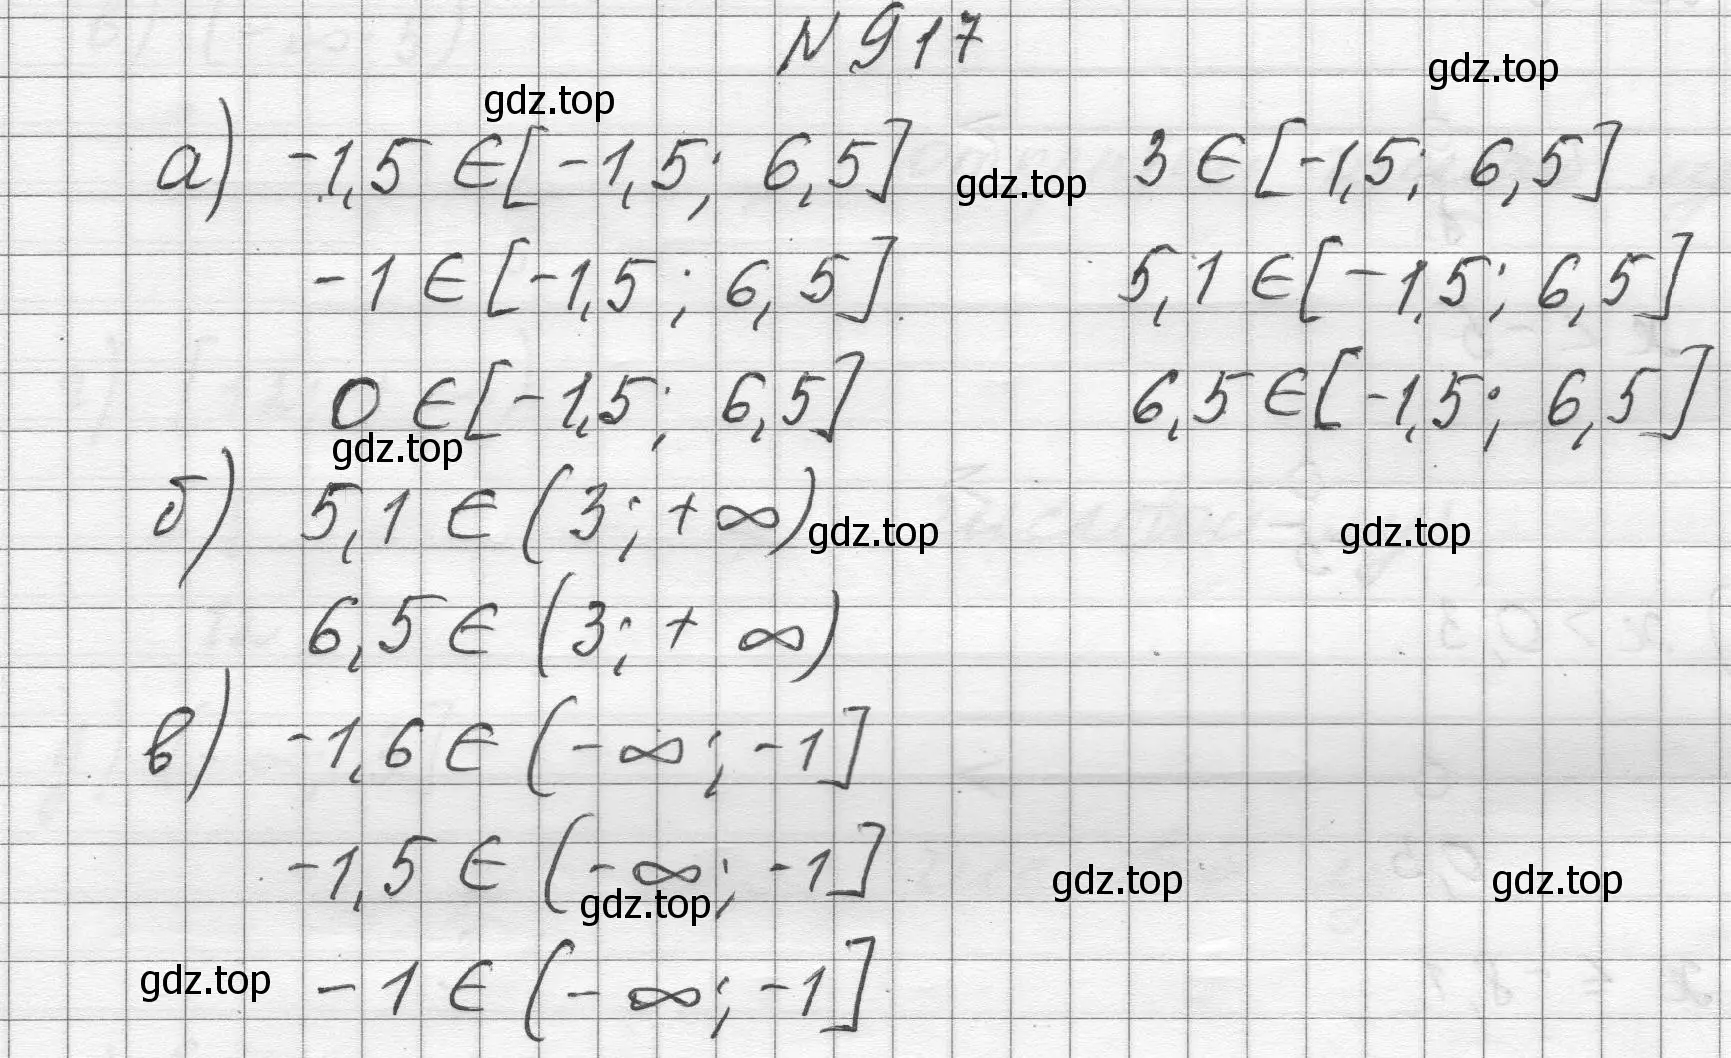 N 917
gdz.top
gdz.top
а) -1,5 ∈ [-1,5; 6,5] gdz.top 3 ∈ [-1,5; 6,5]
-1 ∈ [-1,5; 6,5] 5,1 ∈ [-1,5; 6,5]
0 ∈ [-1,5; 6,5] 6,5 ∈ [-1,5; 6,5]
gdz.top
б) 5,1 ∈ (3; +∞) gdz.top gdz.top
6,5 ∈ (3; +∞)
в) -1,6 ∈ (-∞; -1]
-1,5 ∈ (-∞; -1]
gdz.top gdz.top gdz.top
gdz.top -1 ∈ (-∞; -1]